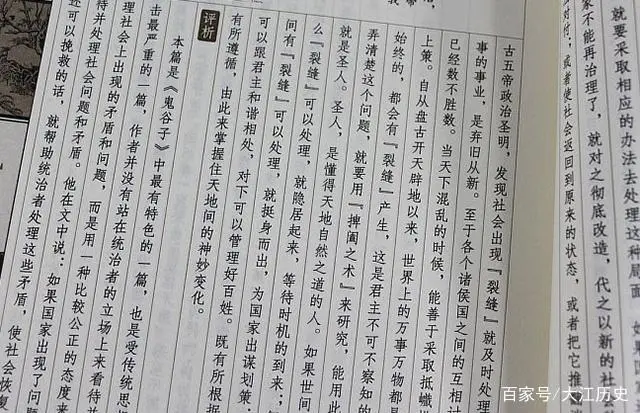 就要采取相应的办法去处理这种局面。如果国
家不能再治理了，就对之彻底改造，代之以新的社
么对付；或者使社会返回到原来的状态，或者把它推
古五帝政治圣明，发现社会出现『裂缝』就及时处理
事的事业，是弃旧从新。至于各个诸侯国之间的互相
已经数不胜数。当天下混乱的时候，能善于采取抵巇
上策。自从盘古开天辟地以来，世界上的万事万物都
始终的，都会有『裂缝』产生，这是君主不可不察知的
弄清楚这个问题，就要用『捭阖之术』来研究，能用此
就是圣人。圣人，是懂得天地自然之道的人。如果世间
么『裂缝』可以处理，就隐居起来，等待时机的到来；
间有『裂缝』可以处理，就挺身而出，为国家出谋划策；
可以跟君主和谐相处，对下可以管理好百姓。既有所根据
有所遵循，由此来掌握住天地间的神妙变化。
评析
本篇是《鬼谷子》中最有特色的一篇，也是受传统思
击最严重的一篇，作者并没有站在统治者的立场上来看待
理社会上出现的矛盾和问题，而是用一种比较公正的态度来
待并处理社会问题和矛盾。他在文中说：如果国家出现了问
还可以挽救的话，就帮助统治者处理这些矛盾，使社会恢复
百家号/大江历史